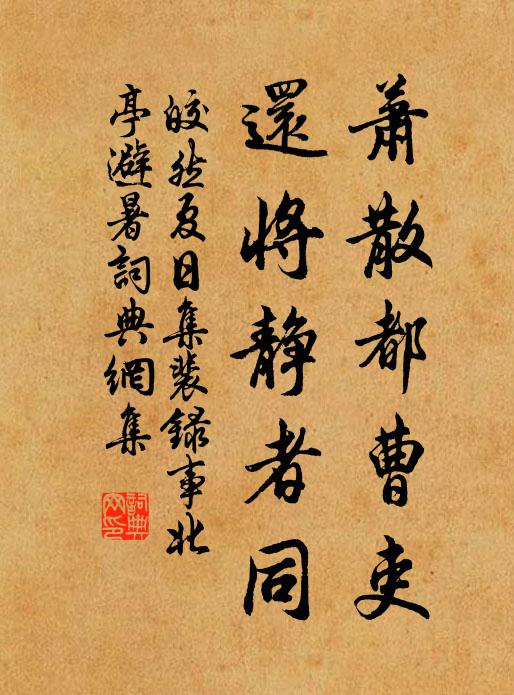 蕭散都曹吏
還將静者同
皎然夏日集裴録事北
亭避暑詞典網集
詞典網印